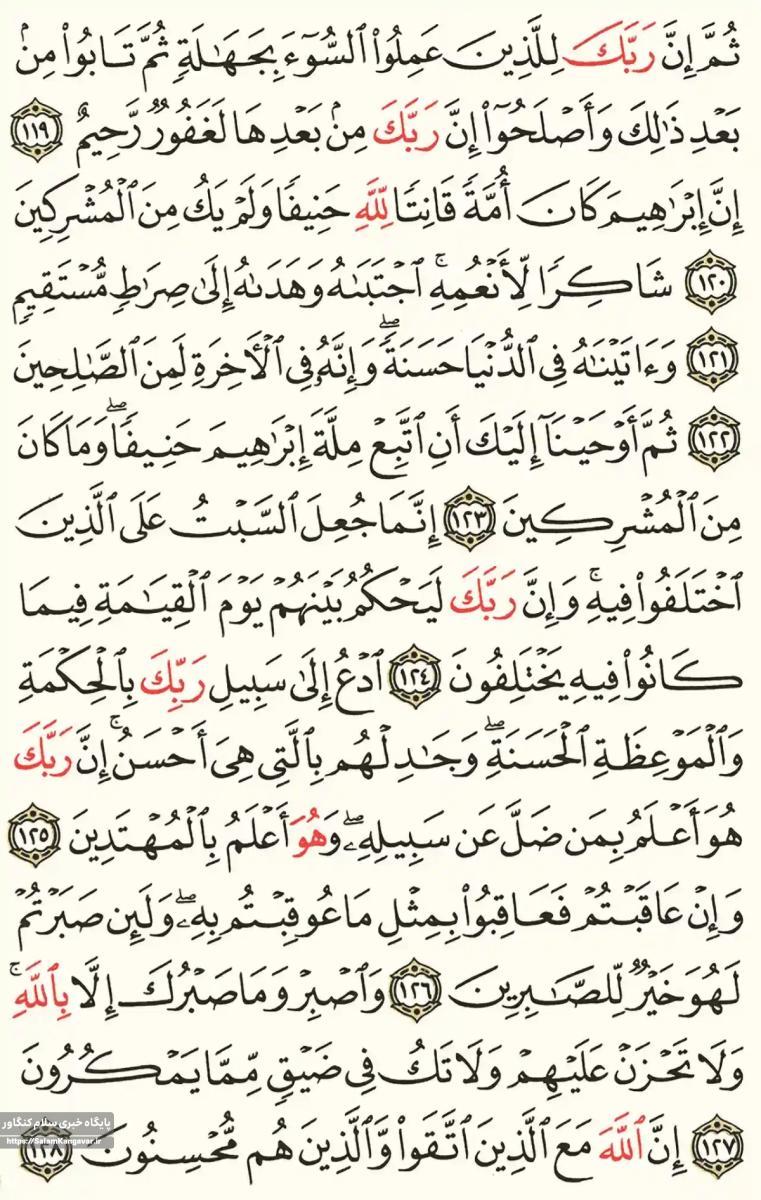 ثُمَّ إِنَّ رَبَّكَ لِلَّذِينَ عَمِلُوا۟ ٱلسُّوٓءَ بِجَهَٰلَةٍ ثُمَّ تَابُوا۟ مِنۢ
بَعْدِ ذَٰلِكَ وَأَصْلَحُوٓا۟ إِنَّ رَبَّكَ مِنۢ بَعْدِهَا لَغَفُورٌ رَّحِيمٌ ١١٩
إِنَّ إِبْرَٰهِيمَ كَانَ أُمَّةً قَانِتًا لِّلَّهِ حَنِيفًا وَلَمْ يَكُ مِنَ ٱلْمُشْرِكِينَ
١٢٠ شَاكِرًا لِّأَنْعُمِهِۚ ٱجْتَبَىٰهُ وَهَدَىٰهُ إِلَىٰ صِرَٰطٍ مُّسْتَقِيمٍ
١٢١ وَءَاتَيْنَٰهُ فِى ٱلدُّنْيَا حَسَنَةًۖ وَإِنَّهُۥ فِى ٱلْءَاخِرَةِ لَمِنَ ٱلصَّٰلِحِينَ
١٢٢ ثُمَّ أَوْحَيْنَآ إِلَيْكَ أَنِ ٱتَّبِعْ مِلَّةَ إِبْرَٰهِيمَ حَنِيفًاۖ وَمَا كَانَ
مِنَ ٱلْمُشْرِكِينَ ١٢٣ إِنَّمَا جُعِلَ ٱلسَّبْتُ عَلَى ٱلَّذِينَ
ٱخْتَلَفُوا۟ فِيهِۚ وَإِنَّ رَبَّكَ لَيَحْكُمُ بَيْنَهُمْ يَوْمَ ٱلْقِيَٰمَةِ فِيمَا
كَانُوا۟ فِيهِ يَخْتَلِفُونَ ١٢٤ ٱدْعُ إِلَىٰ سَبِيلِ رَبِّكَ بِٱلْحِكْمَةِ
وَٱلْمَوْعِظَةِ ٱلْحَسَنَةِۖ وَجَٰدِلْهُم بِٱلَّتِى هِىَ أَحْسَنُۚ إِنَّ رَبَّكَ
هُوَ أَعْلَمُ بِمَن ضَلَّ عَن سَبِيلِهِۦۖ وَهُوَ أَعْلَمُ بِٱلْمُهْتَدِينَ ١٢٥
وَإِنْ عَاقَبْتُمْ فَعَاقِبُوا۟ بِمِثْلِ مَا عُوقِبْتُم بِهِۦۖ وَلَئِن صَبَرْتُمْ
لَهُوَ خَيْرٌ لِّلصَّٰبِرِينَ ١٢٦ وَٱصْبِرْ وَمَا صَبْرُكَ إِلَّا بِٱللَّهِۚ
وَلَا تَحْزَنْ عَلَيْهِمْ وَلَا تَكُ فِى ضَيْقٍ مِّمَّا يَمْكُرُونَ
١٢٧ إِنَّ ٱللَّهَ مَعَ ٱلَّذِينَ ٱتَّقَوا۟ وَّٱلَّذِينَ هُم مُّحْسِنُونَ ١٢٨
پایگاه خبری سلام کنگاور
https://SalamKangavar.ir